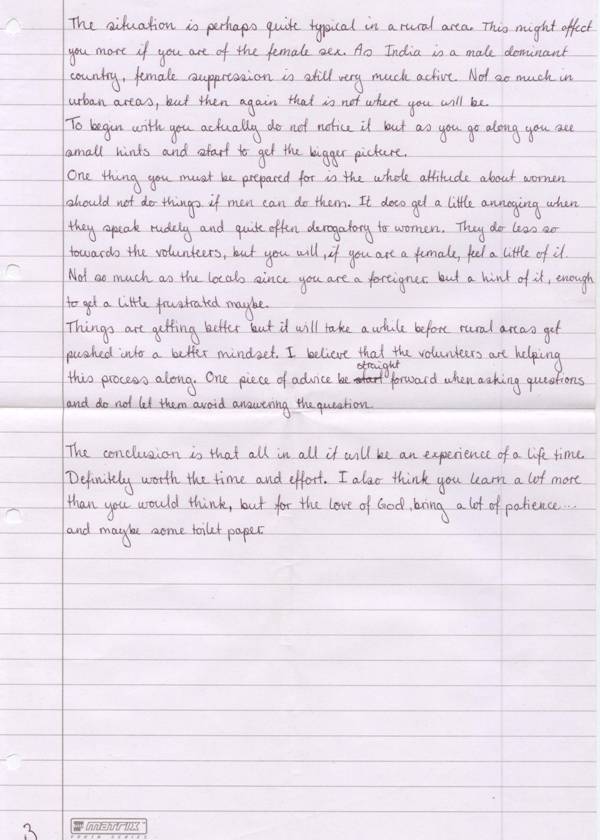 The situation is perhaps quite typical in a rural area. This might affect
you more if you are of the female sex. As India is a male dominant
country, female suppression is still very much active. Not so much in
urban areas, but then again that is not where you will be.
To begin with you actually do not notice it but as you go along you see
small hints and start to get the bigger picture.
One thing you must be prepared for is the whole attitude about women
should not do things if men can do them. It does get a little annoying when
they speak rudely and quite often derogatory to women. They do less so
towards the volunteers, but you will, if you are a female, feel a little of it.
Not so much as the locals since you are a foreigner but a hint of it, enough
to get a little frustrated maybe.
Things are getting better but it will take a while before rural areas get
pushed into a better mindset. I believe that the volunteers are helping
straight
this process along. One piece of advice be start forward when asking questions
and do not let them avoid answering the question.
The conclusion is that all in all it will be an experience of a life time.
Definitely worth the time and effort. I also think you learn a lot more
than you would think, but for the love of God, bring a lot of patience...
and maybe some toilet paper.
3
MATRIX